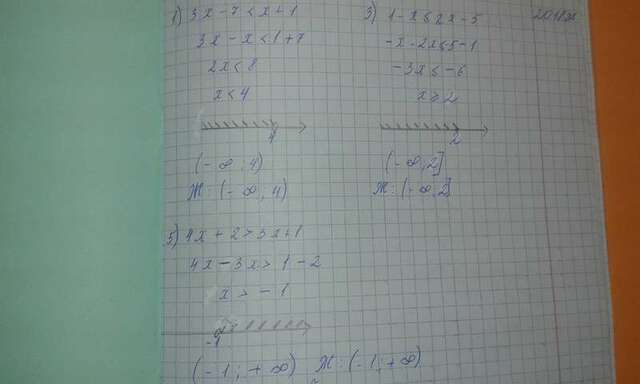 1) 3x - 7 < x + 1
3x - x < 1 + 7
2x < 8
x < 4
4
(-∞; 4)
Ж: (-∞; 4)
3) 1 - x ≤ 2x - 5
-x - 2x ≤ -5 - 1
-3x ≤ -6
x ≥ 2
2
(-∞; 2]
Ж: (-∞; 2]
5) 4x + 2 > 3x + 1
4x - 3x > 1 - 2
x > -1
-1
(-1; +∞) Ж: (-1; +∞)